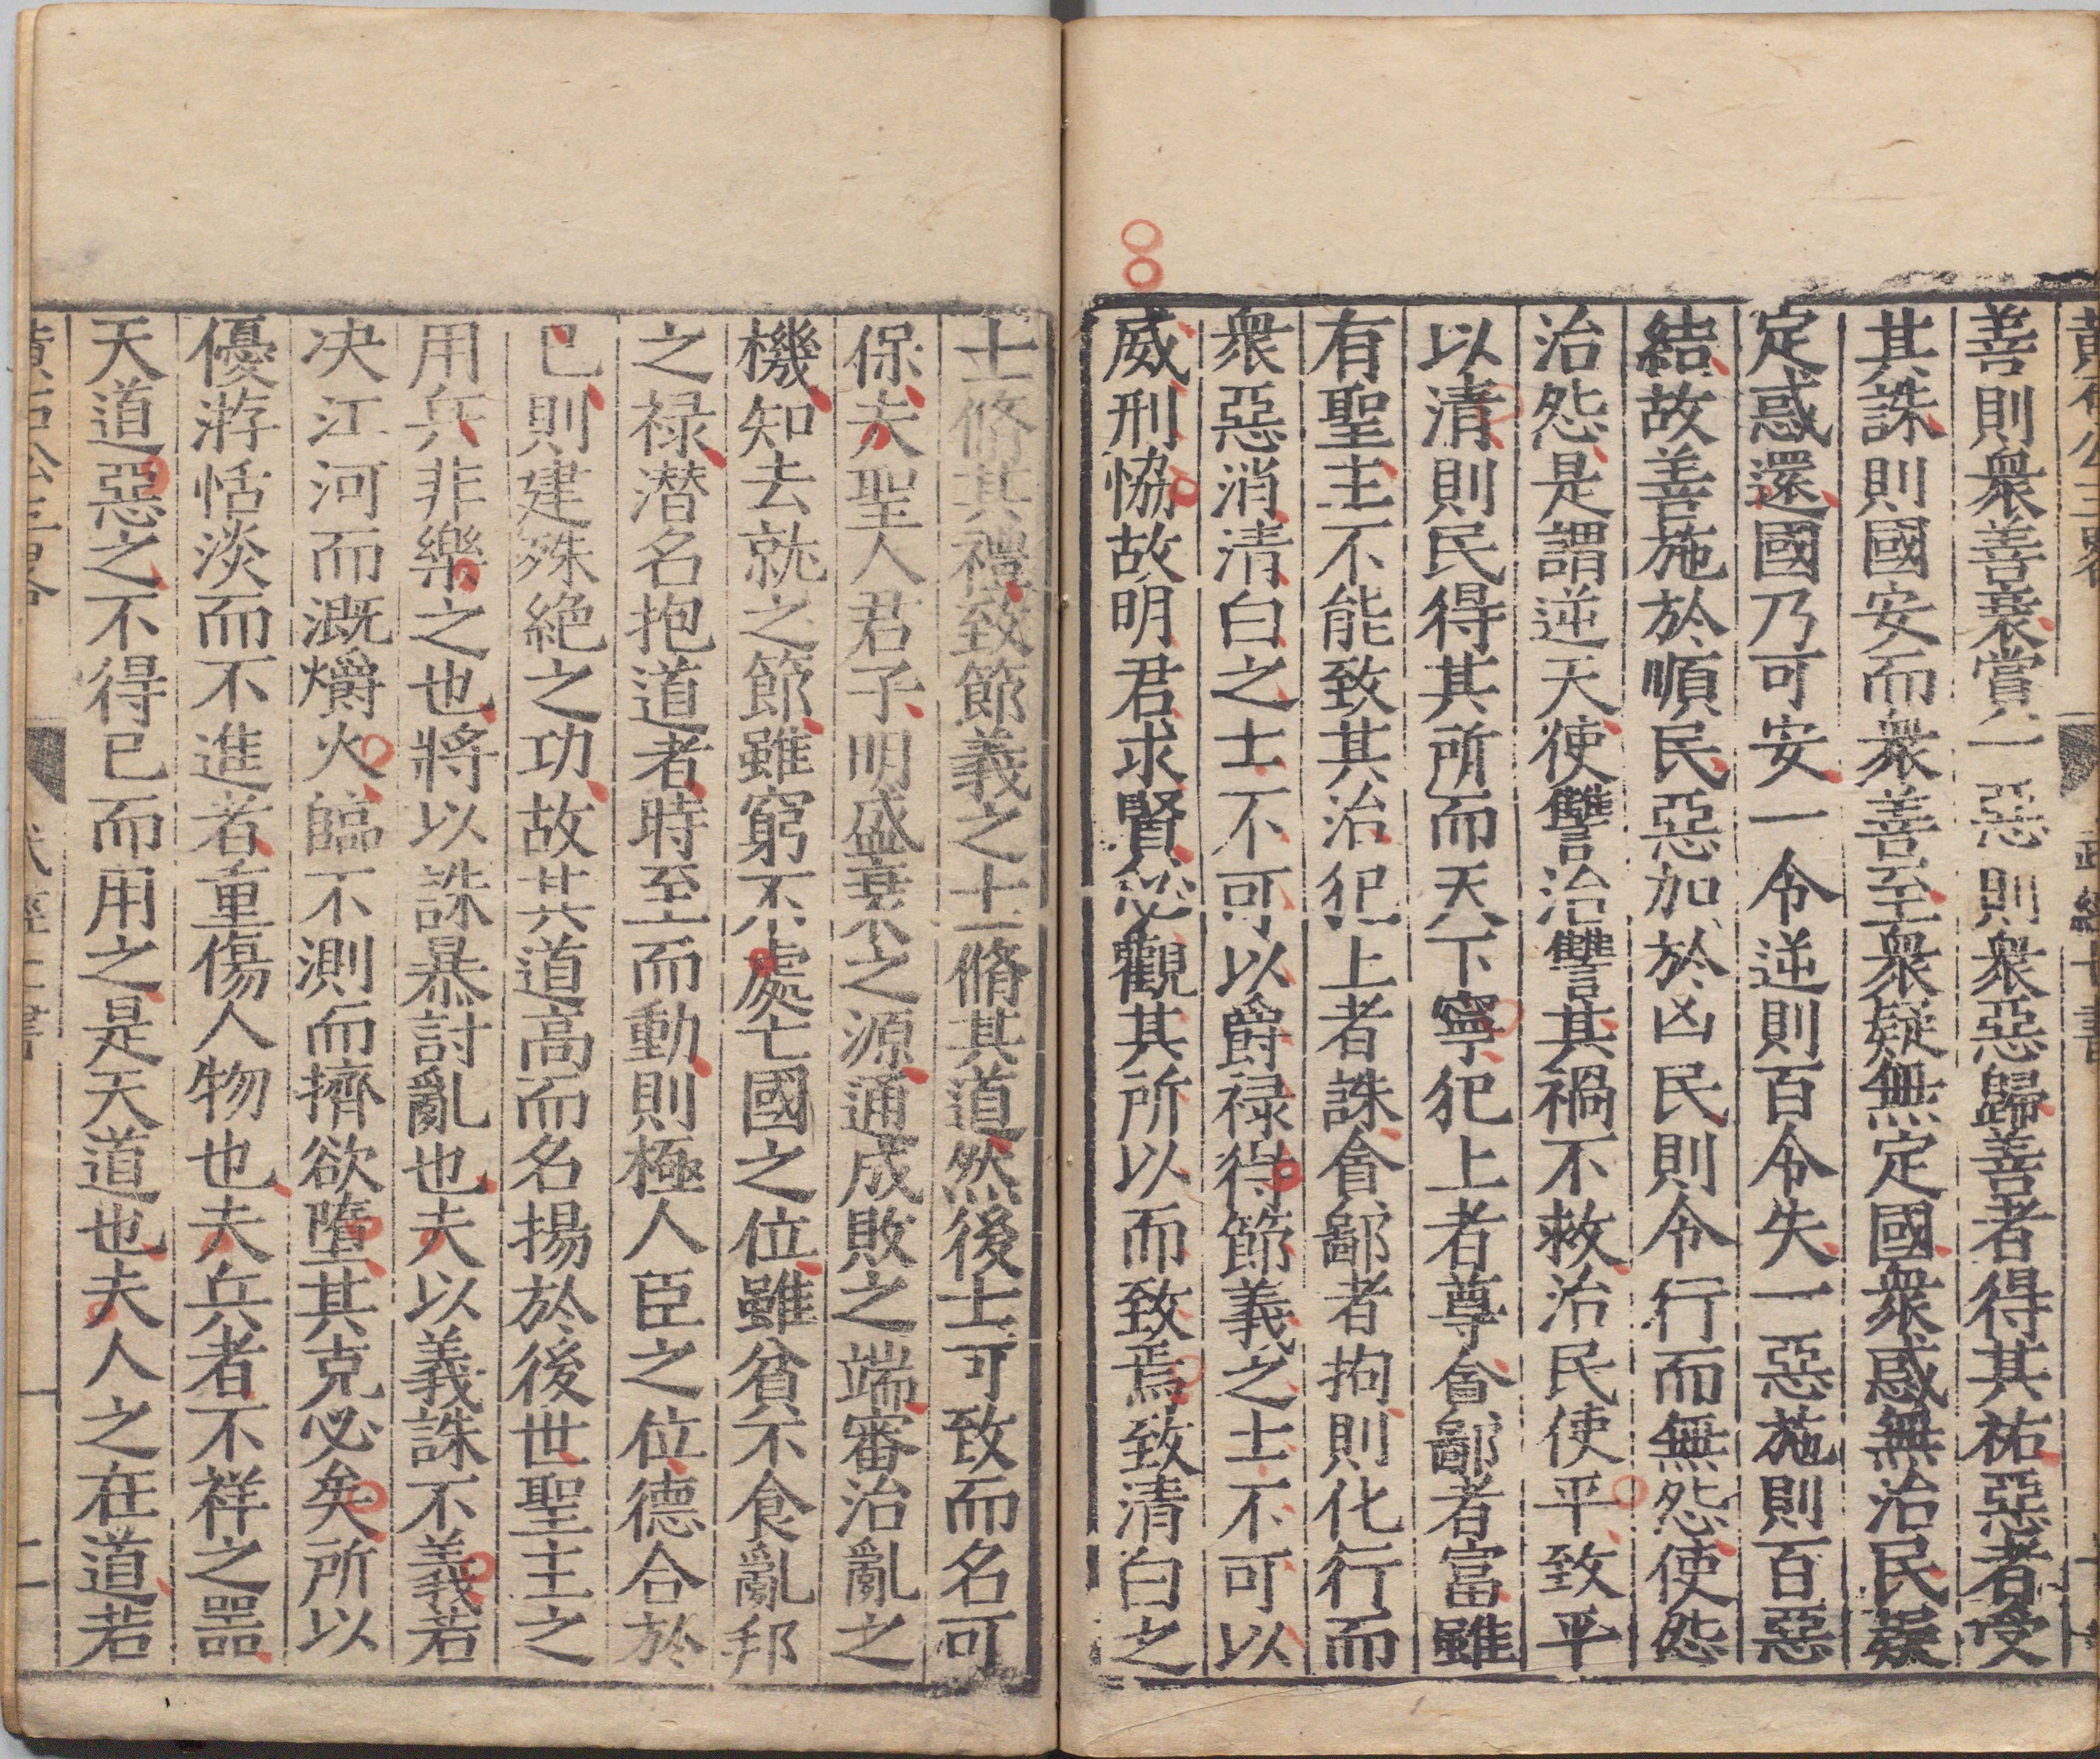 黄石公三畧 武經七書
善則衆善衰賞一惡則衆惡歸善者得其祐惡者受
其誅則國安而衆善至衆疑無定國衆惑無治民疑
定惑還國乃可安一令逆則百令失一惡施則百惡
結故善施於順民惡加於凶民則令行而無怨使怨
治怨是謂逆天使讐治讐其禍不救治民使平致平
以清則民得其所而天下寧犯上者尊貪鄙者富雖
有聖主不能致其治犯上者誅貪鄙者拘則化行而
衆惡消清白之士不可以爵禄得節義之士不可以
威刑恊故明君求賢必觀其所以而致焉致清白之
士脩其禮致節義之士脩其道然後士可致而名可
保夫聖人君子明盛衰之源通成敗之端審治亂之
機知去就之節雖窮不處亡國之位雖貧不食亂邦
之禄潜名抱道者時至而動則極人臣之位德合於
已則建殊絶之功故其道高而名揚於後世聖主之
用兵非樂之也將以誅暴討亂也夫以義誅不義若
决江河而溉爝火臨不測而擠欲墮其克必矣所以
優游恬淡而不進者重傷人物也夫兵者不祥之噐
天道惡之不得已而用之是天道也夫人之在道若
黄石公三畧 武經七書